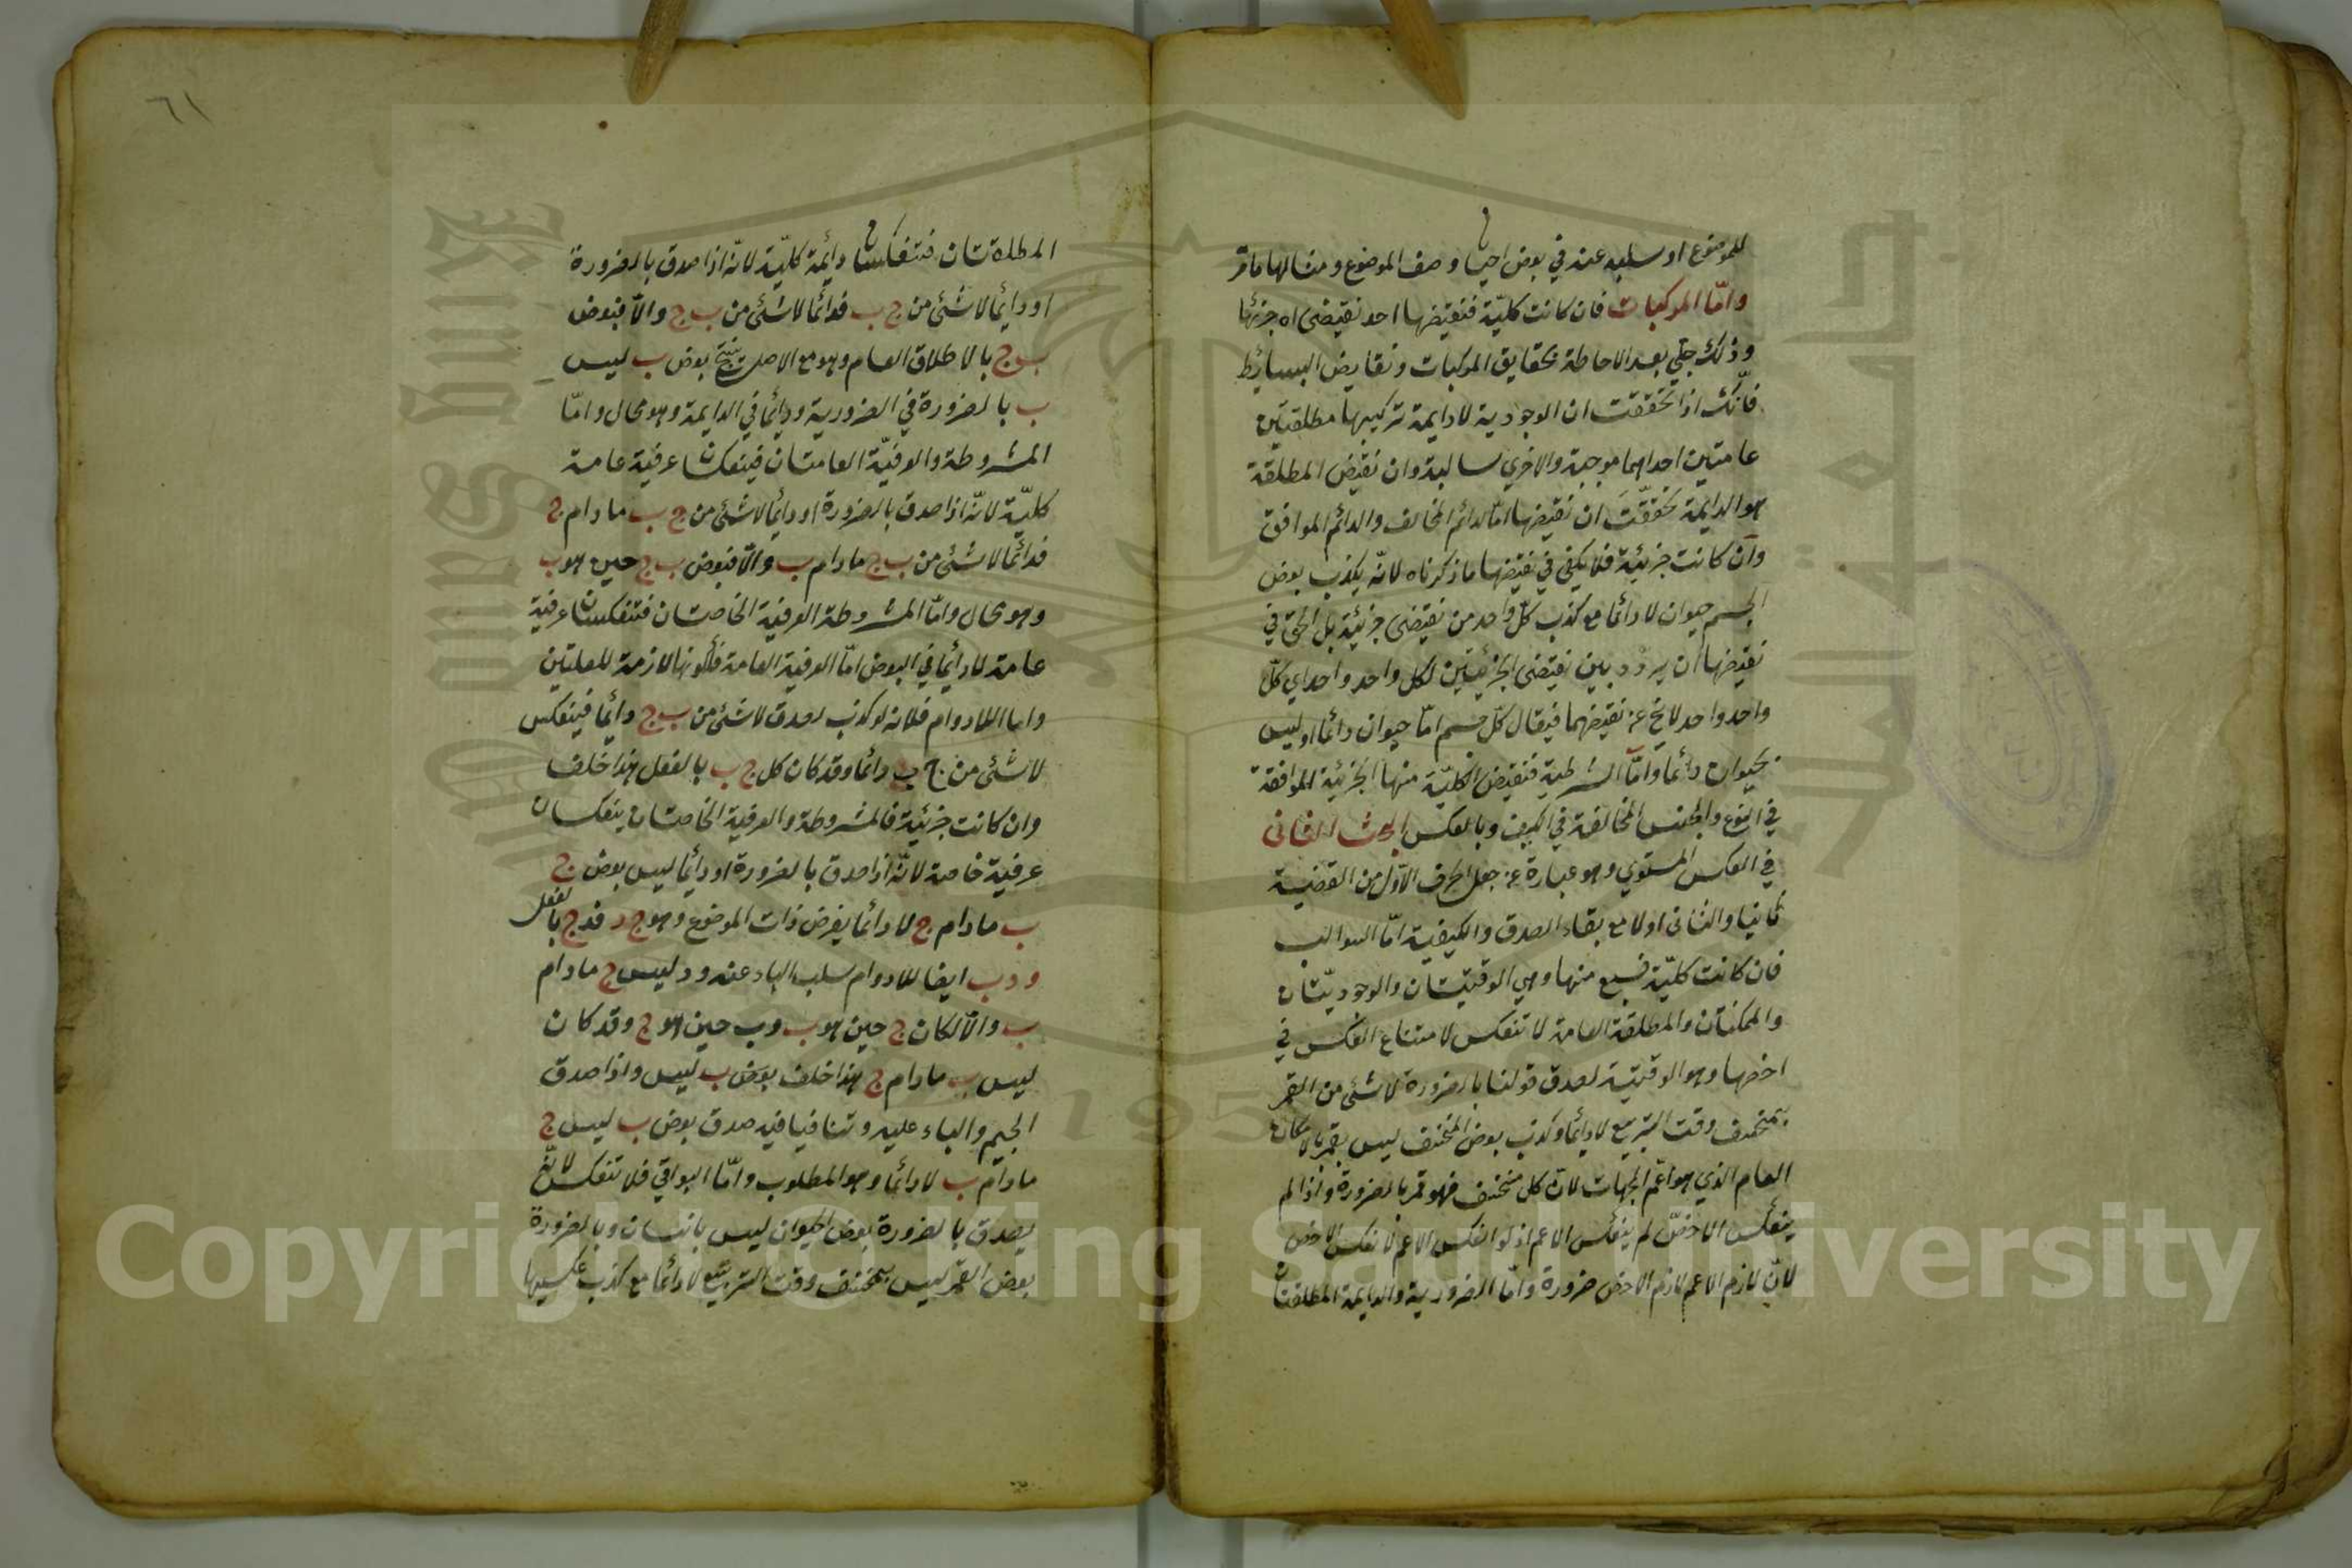 للموضوع او سلبه عنه في بعض احيان وصف الموضوع ومثالها ما مرّ
وامّا المركبات فان كانت كليّة فنقيضها احد نقيضى جزئها
وذلك جلي بعد الاحاطة بحقايق المركبات ونقايض البسائط
فانّك اذا تحققت ان الوجودية لا دايمة تركيبها مطلقتين
عامتين احداهما موجبة والاخري سالبة وان نقيض المطلقة
هو الدايمة تحققّت ان نقيضها امّا الدائم المخالف والدائم الموافق
وان كانت جزئية فلا يكفي في نقيضها ما ذكرناه لانّه يكذب بعض
الجسم حيوان لا دائما مع كذب كلّ واحد من نقيضى جزئية بل الحق في
نقيضها ان يردّد بين نقيضى الجزئيتين لكل واحد واحد اي كلّ
واحد واحد لا يخ عن نقيضهما فيقال كلّ جسم امّا حيوان دائما او ليس
بحيوان دائما وامّا الشرطية فنقيض الكليّة منها الجزئية الموافقة
في النوع والجنس المخالفة في الكيف وبالعكس البحث الثانى
في العكس المستوي وهو عبارة عن جعل الجزء الاوّل من القضية
ثانيا والثانى اولا مع بقاء الصدق والكيفية امّا السوالب
فان كانت كليّة فسبع منها وهي الوقتيتان والوجوديّتان
والممكنتان والمطلقة العامة لا تنعكس لامتناع العكس في
اخصها وهو الوقتية لصدق قولنا بالضرورة لا شئ من القمر
بمنخسف وقت التربيع لا دائما وكذب بعض المنخسف ليس بقمر بالامكان
العام الذي هو اعّم الجهات لان كل منخسف فهو قمر بالضرورة واذا لم
ينعكس الاخصّ لم ينعكس الاعم اذ لو انعكس الاعم لانعكس الاخص
لانّ لازم الاعم لازم الاخص ضرورة وامّا الضرورية والدايمة المطلقتان
٦١
المطلقتان فتنعكسان دائمة كليّة لانّه اذا صدق بالضرورة
او دائما لا شئ من ج ب فدائما لا شئ من ب ج والاّ فبعض
ب ج بالاطلاق العام وهو مع الاصل ينتج بعض ب ليس
ب بالضرورة في الضرورية ودائما في الدايمة وهو محال وامّا
المشروطة والعرفيّة العامتان فينعكسان عرفية عامة
كليّة لانّه اذا صدق بالضرورة او دائما لا شئ من ج ب ما دام ج
فدائما لا شئ من ب ج ما دام ب والاّ فبعض ب ج حين هو ب
وهو محال وامّا المشروطة العرفية الخاصتان فتنعكسان عرفية
عامة لا دائما في البعض امّا العرفية العامة فلكونها لازمة للعامتين
واما اللادوام فلانه لو كذب لصدق لا شئ من ب ج دائما فينعكس
لا شئ من ج ب دائما وقد كان كل ج ب بالفعل هذا خلف
وان كانت جزئية فالمشروطة والعرفية الخاصتان ينعكسان
عرفية خاصة لانّه اذا صدق بالضرورة او دائما ليس بعض ج
ب ما دام ج لا دائما يفرض ذات الموضوع وهو ج د فد ج بالفعل
ود ب ايضا للادوام سلب الباء عنه ود ليس ج ما دام
ب والاّ لكان ج حين هو ب وب حين هو ج وقد كان
ليس ب ما دام ج هذا خلف بعض ب ليس واذا صدق
الجيم والباء عليه وتنافيا فيه صدق بعض ب ليس ج
ما دام ب لا دائما وهو المطلوب وامّا البواقي فلا تنعكس لانّه
يصدق بالضرورة بعض الحيوان ليس بانسان وبالضرورة
بعض القمر ليس بمنخسف وقت التربيع لا دائما مع كذب عكسيها
Copyright © King Saud University
1957